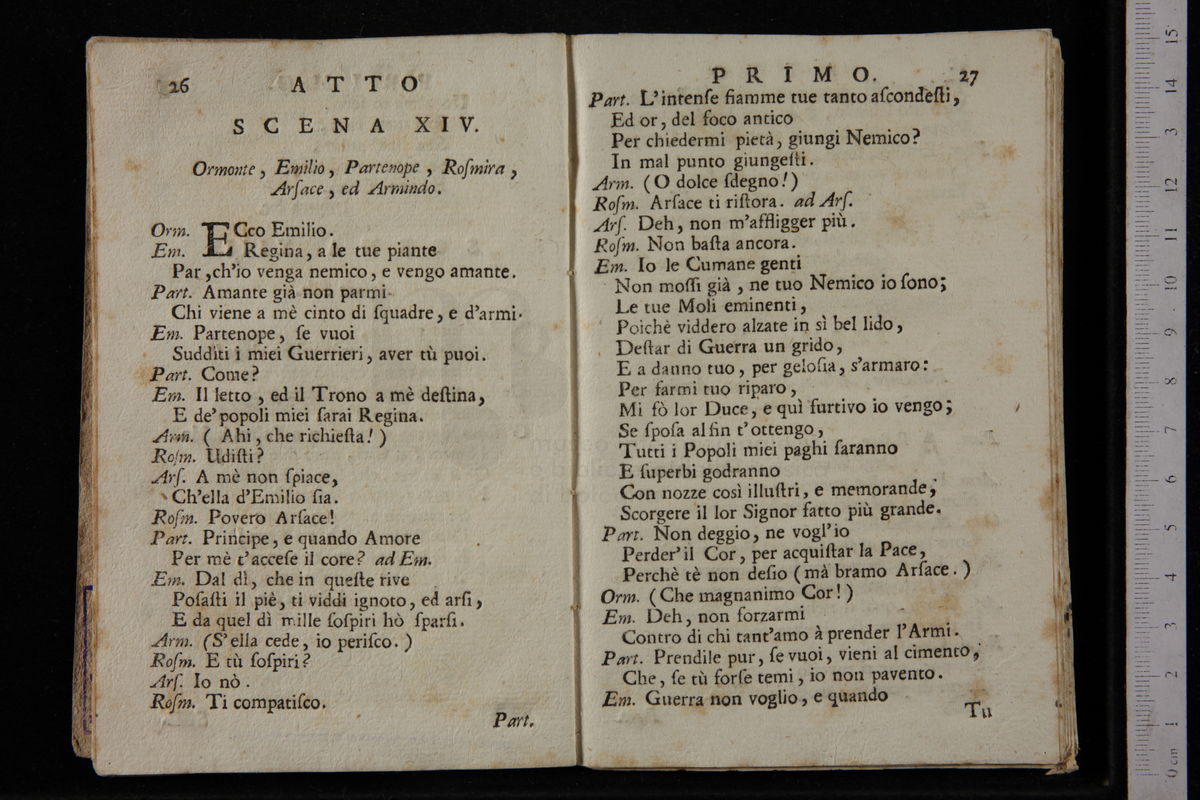 26 ATTO
SCENA XIV.
Ormonte, Emilio, Partenope, Roſmira,
Arſace, ed Armindo.
Orm. ECco Emilio.
Em. Regina, a le tue piante
Par, ch'io venga nemico, e vengo amante.
Part. Amante già non parmi
Chi viene a mè cinto di ſquadre, e d'armi.
Em. Partenope, ſe vuoi
Sudditi i miei Guerrieri, aver tù puoi.
Part. Come?
Em. Il letto, ed il Trono a mè deſtina,
E de' popoli miei ſarai Regina.
Arm. ( Ahi, che richieſta! )
Roſm. Udiſti?
Arſ. A mè non ſpiace,
Ch'ella d'Emilio ſia.
Roſm. Povero Arſace!
Part. Principe, e quando Amore
Per mè t'acceſe il core? ad Em.
Em. Dal dì, che in queſte rive
Poſaſti il piè, ti viddi ignoto, ed arſi,
E da quel dì mille ſoſpiri hò ſparſi.
Arm. (S'ella cede, io periſco. )
Roſm. E tù ſoſpiri?
Arſ. Io nò.
Roſm. Ti compatiſco.
Part.
PRIMO. 27
Part. L'intenſe fiamme tue tanto aſcondeſti,
Ed or, del foco antico
Per chiedermi pietà, giungi Nemico?
In mal punto giungeſti.
Arm. (O dolce ſdegno!)
Roſm. Arſace ti riſtora. ad Arſ.
Arſ. Deh, non m'affligger più.
Roſm. Non baſta ancora.
Em. Io le Cumane genti
Non moſſi già, ne tuo Nemico io ſono;
Le tue Moli eminenti,
Poichè viddero alzate in sì bel lido,
Deſtar di Guerra un grido,
E a danno tuo, per geloſia, s'armaro:
Per farmi tuo riparo,
Mi fò lor Duce, e quì furtivo io vengo;
Se ſpoſa al fin t'ottengo,
Tutti i Popoli miei paghi ſaranno
E ſuperbi godranno
Con nozze così illuſtri, e memorande,
Scorgere il lor Signor fatto più grande.
Part. Non deggio, ne vogl'io
Perder' il Cor, per acquiſtar la Pace,
Perchè tè non deſio (mà bramo Arſace. )
Orm. (Che magnanimo Cor!)
Em. Deh, non forzarmi
Contro di chi tant'amo à prender l'Armi.
Part. Prendile pur, ſe vuoi, vieni al cimento,
Che, ſe tù forſe temi, io non pavento.
Em. Guerra non voglio, e quando
Tu
15
14
13
12
11
10
9
8
7
6
5
4
3
2
1
0 cm